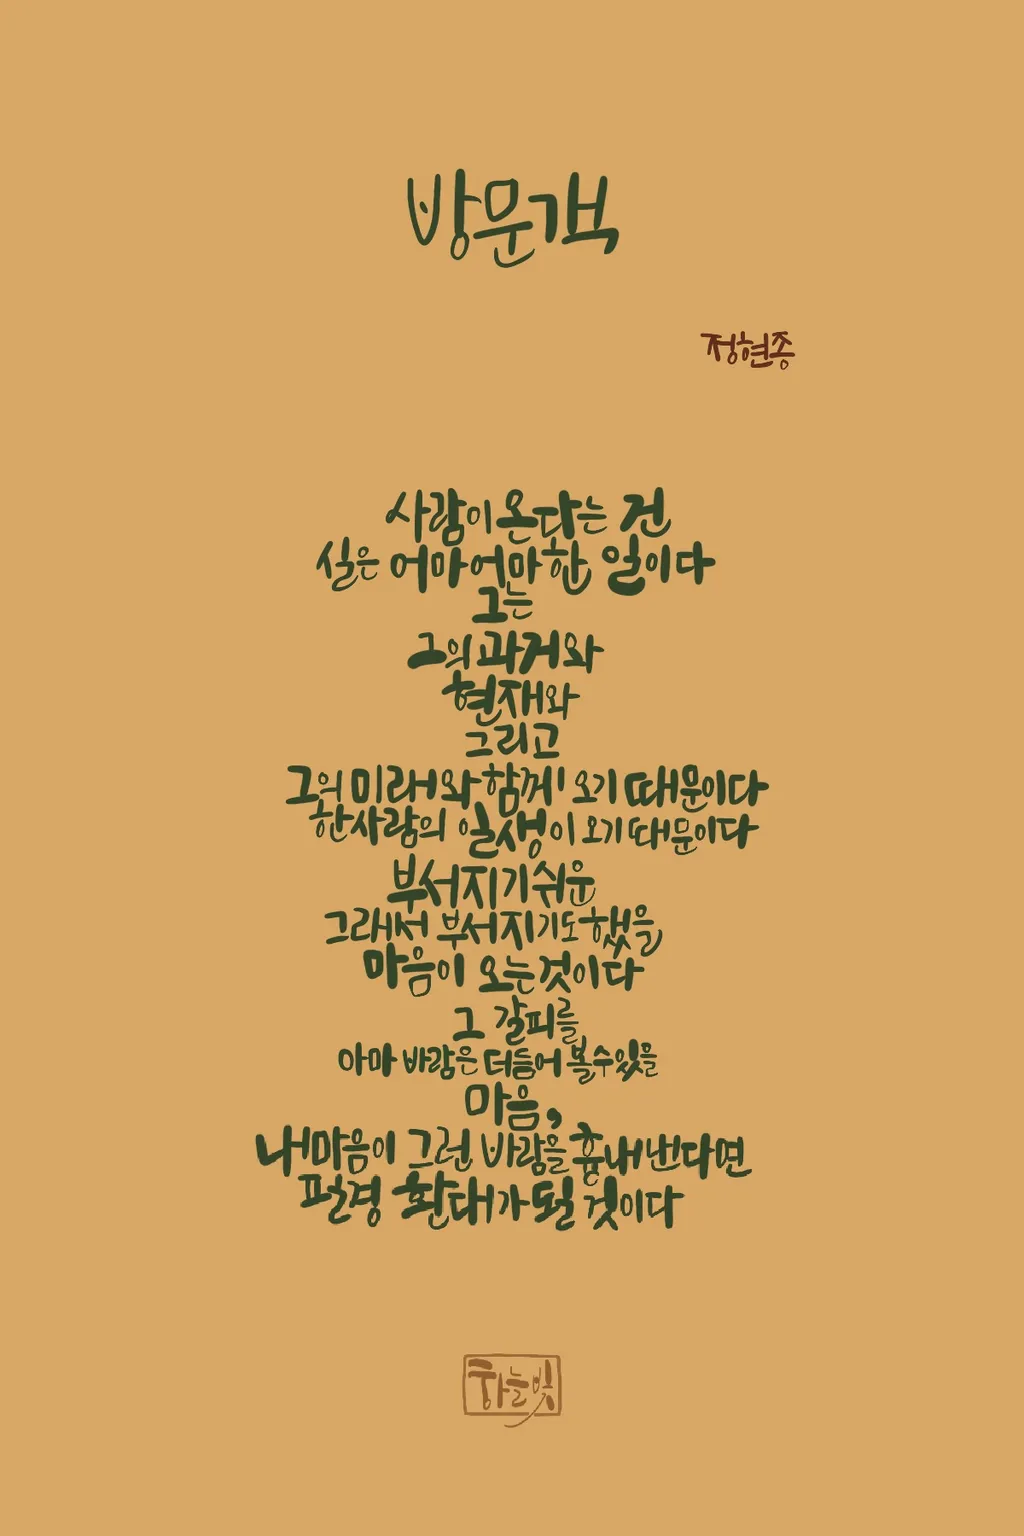 방문객
정현종
사람이 온다는 건
실은 어마어마한 일이다
그는
그의 과거와
현재와
그리고
그의 미래와 함께 오기 때문이다
한 사람의 일생이 오기 때문이다
부서지기 쉬운
그래서 부서지기도 했을
마음이 오는 것이다
그 갈피를
아마 바람은 더듬어 볼 수 있을
마음,
내 마음이 그런 바람을 흉내 낸다면
필경 환대가 될 것이다
하늘빛